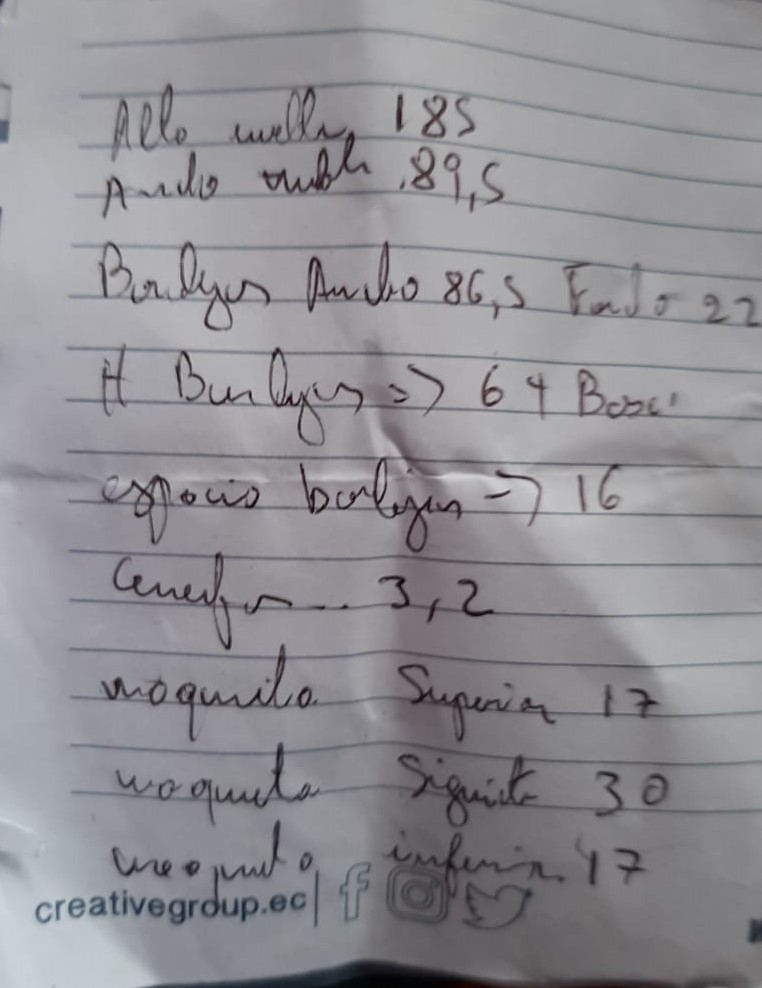 Alto muelle 185
Ancho muble 89,5
Bandejas Ancho 86,5 Fondo 22
H Bandejas => 64 Base
espacio bandejas -> 16
Cenefas... 3,2
maqueta Superior 17
maqueta Siguiente 30
maqueta inferior 47
creativegroup.ec|